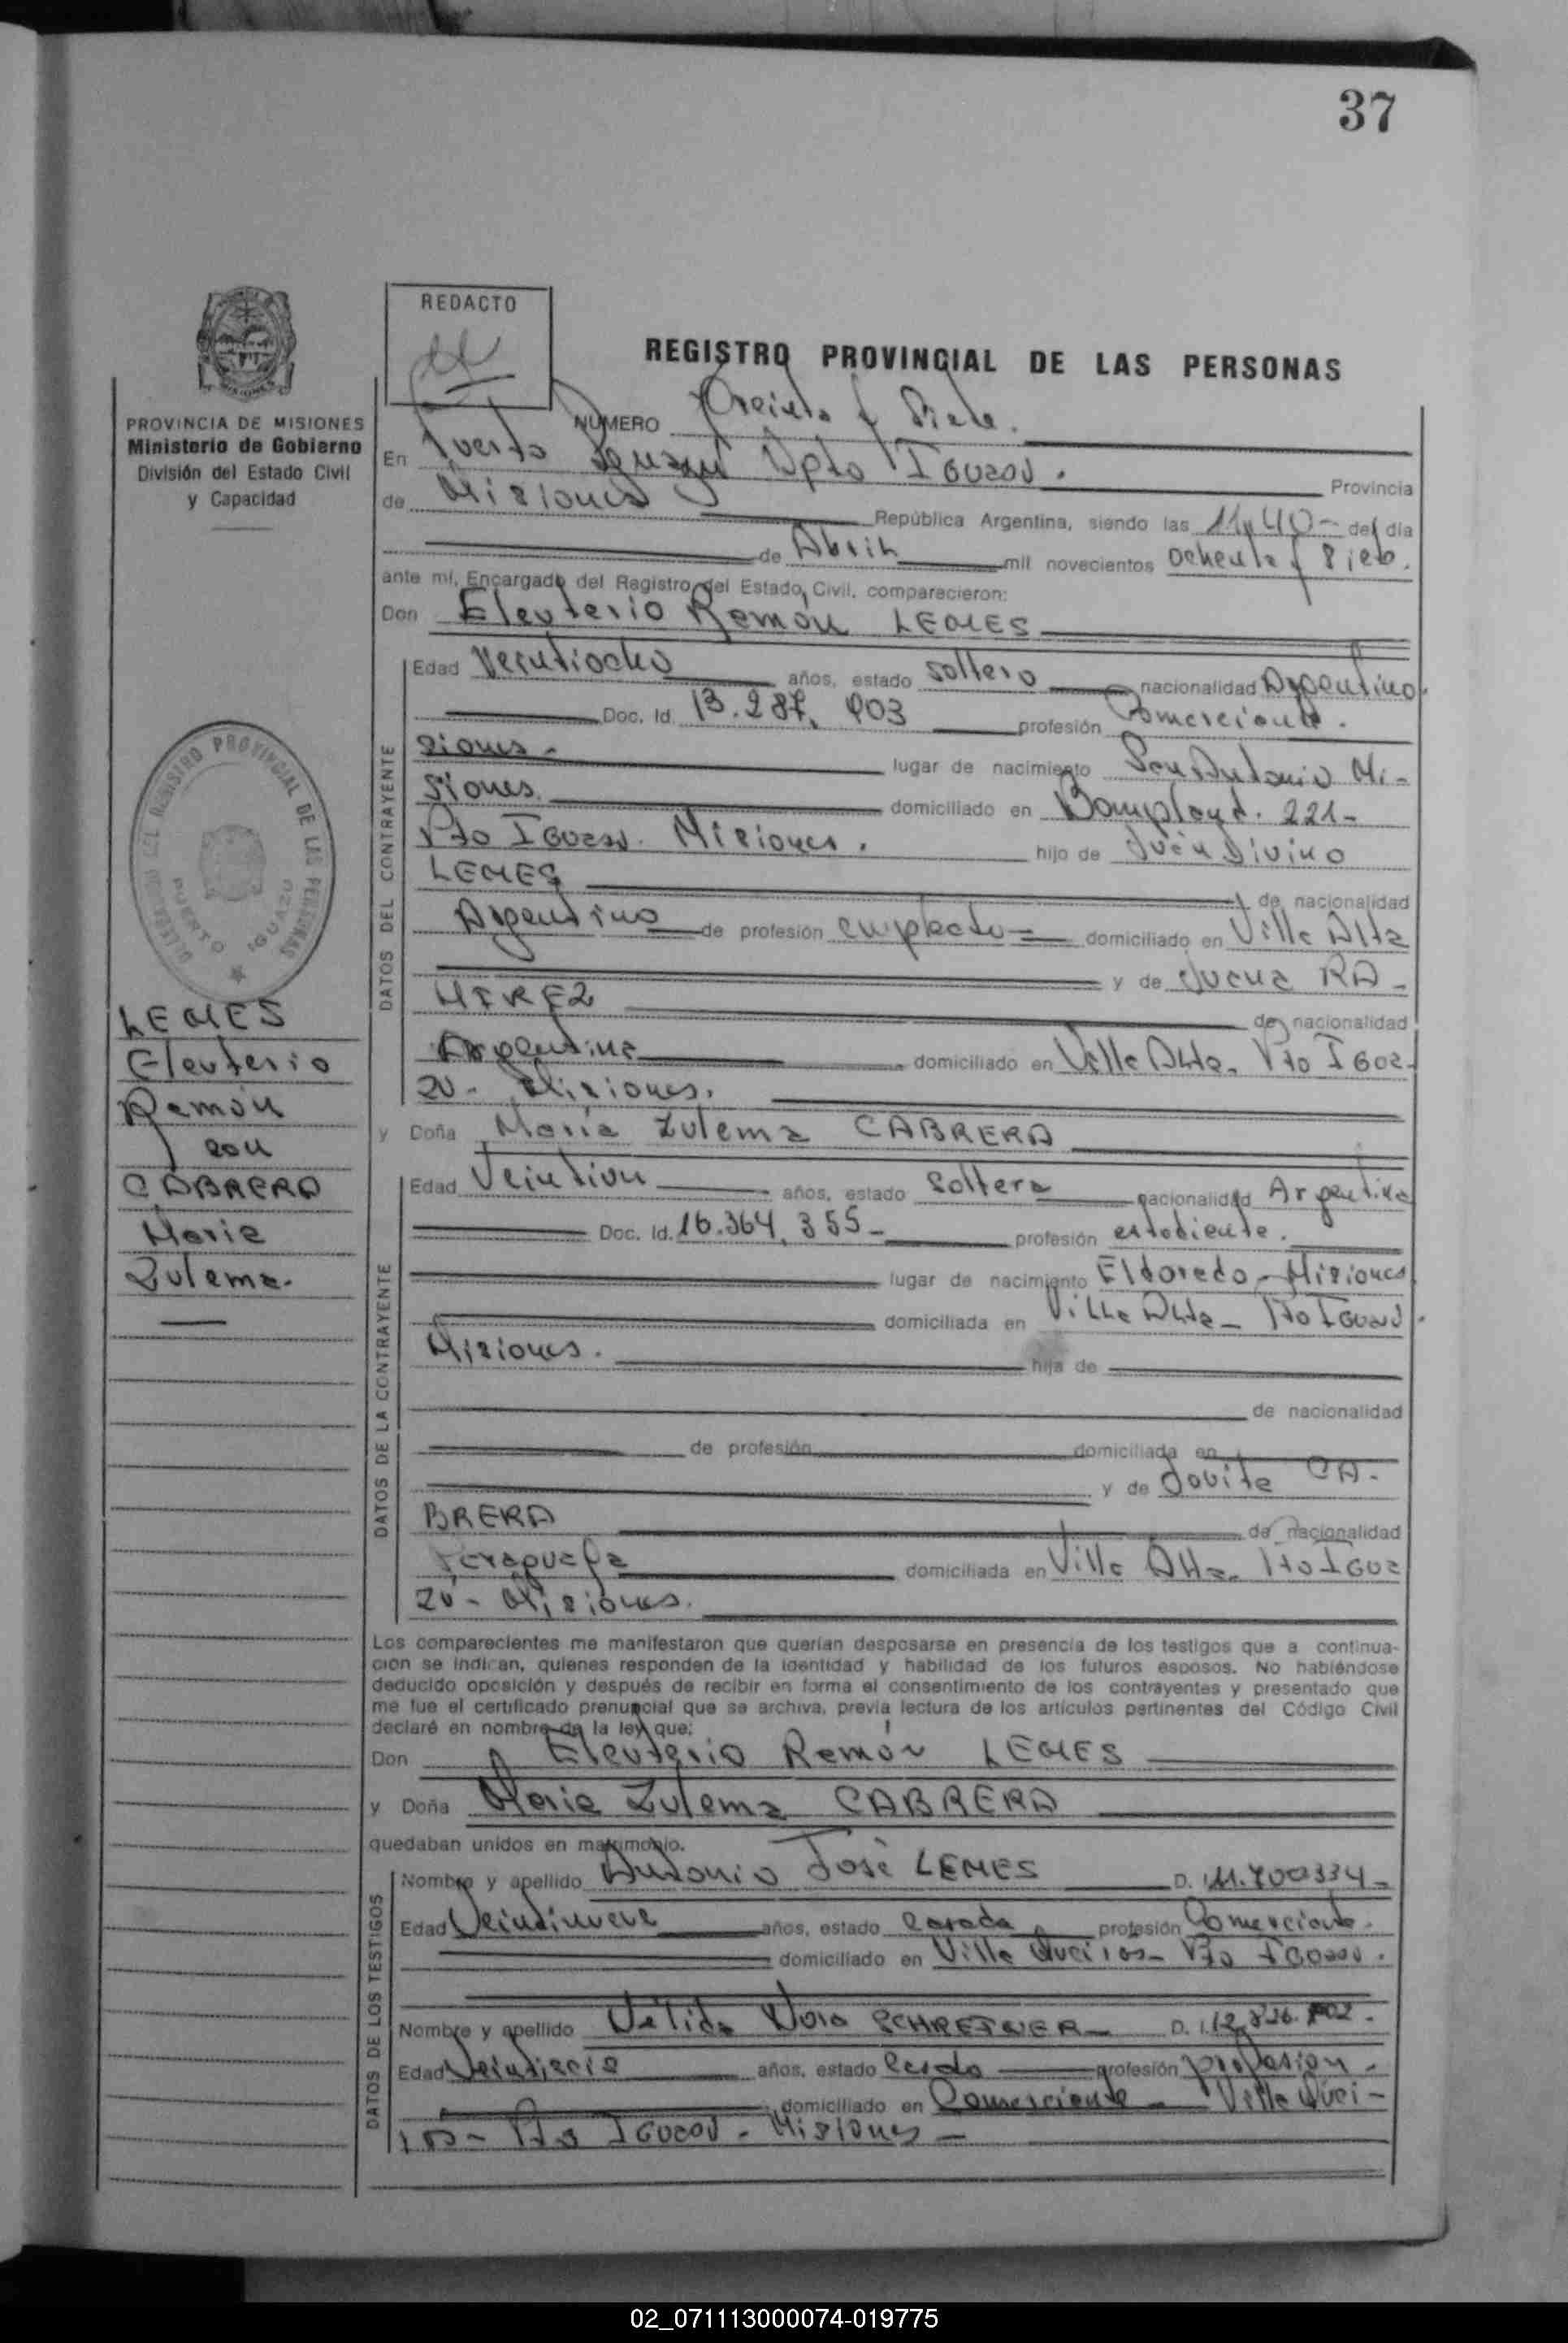 37
REDACTO
REGISTRO PROVINCIAL DE LAS PERSONAS
PROVINCIA DE MISIONES
Ministerio de Gobierno
División del Estado Civil
y Capacidad
NUMERO Treinta y Siete.
En Puerto Iguazú Dpto IGUAZU.
Provincia
de Misiones República Argentina, siendo las 11,40- del día
de Abril mil novecientos ochenta y siete.
ante mí, Encargado del Registro del Estado Civil, comparecieron:
Don Eleuterio Ramón LEMES
Edad Veintiocho años, estado soltero nacionalidad Argentino.
Doc. Id. 13.287.903 profesión Comerciante.
siones- lugar de nacimiento San Antonio Mi-
siones. domiciliado en Bompland. 221-
Pto IGuazu. Misiones. hijo de Juan Divino
LEMES de nacionalidad
Argentino de profesión empleado domiciliado en Villa Alta
y de Juana RA-
MIREZ de nacionalidad
Argentina domiciliado en Villa Alta. Pto IGua-
zu- Misiones.
y Doña María Zulema CABRERA
Edad Veintiun años, estado soltera nacionalidad Argentina
Doc. Id. 16.364.355- profesión estudiante.
lugar de nacimiento Eldorado-Misiones
domiciliada en Villa Alta- Pto IGuazu.
Misiones. hija de
de nacionalidad
de profesión domiciliada en
y de Jovita CA-
BRERA de nacionalidad
Paraguaya domiciliada en Villa Alta. Pto IGua
zu- Misiones.
DATOS DEL CONTRAYENTE
DATOS DE LA CONTRAYENTE
DEL REGISTRO PROVINCIAL DE LAS PERSONAS
PUERTO IGUAZU
LEMES
Eleuterio
Ramón
con
CABRERA
Maria
Zulema.
Los comparecientes me manifestaron que querían desposarse en presencia de los testigos que a continua-
ción se indican, quienes responden de la identidad y habilidad de los futuros esposos. No habiéndose
deducido oposición y después de recibir en forma el consentimiento de los contrayentes y presentado que
me fue el certificado prenupcial que se archiva, previa lectura de los artículos pertinentes del Código Civil
declaré en nombre de la ley que:
Don Eleuterio Ramón LEMES
y Doña Maria Zulema CABRERA
quedaban unidos en matrimonio.
DATOS DE LOS TESTIGOS
Nombre y apellido Antonio José LEMES D. I. 11.700334-
Edad Veintinueve años, estado casado profesión Comerciante.
domiciliado en Villa Quciros- Pto IGuazu.
Nombre y apellido Nélida Nora SCHREINER- D. I. 12.826.
Edad Veintiseis años, estado casda profesión profesion.
domiciliado en Comerciante- Villa Quci-
ros- Pto IGuazu- Misiones-
02_071113000074-019775